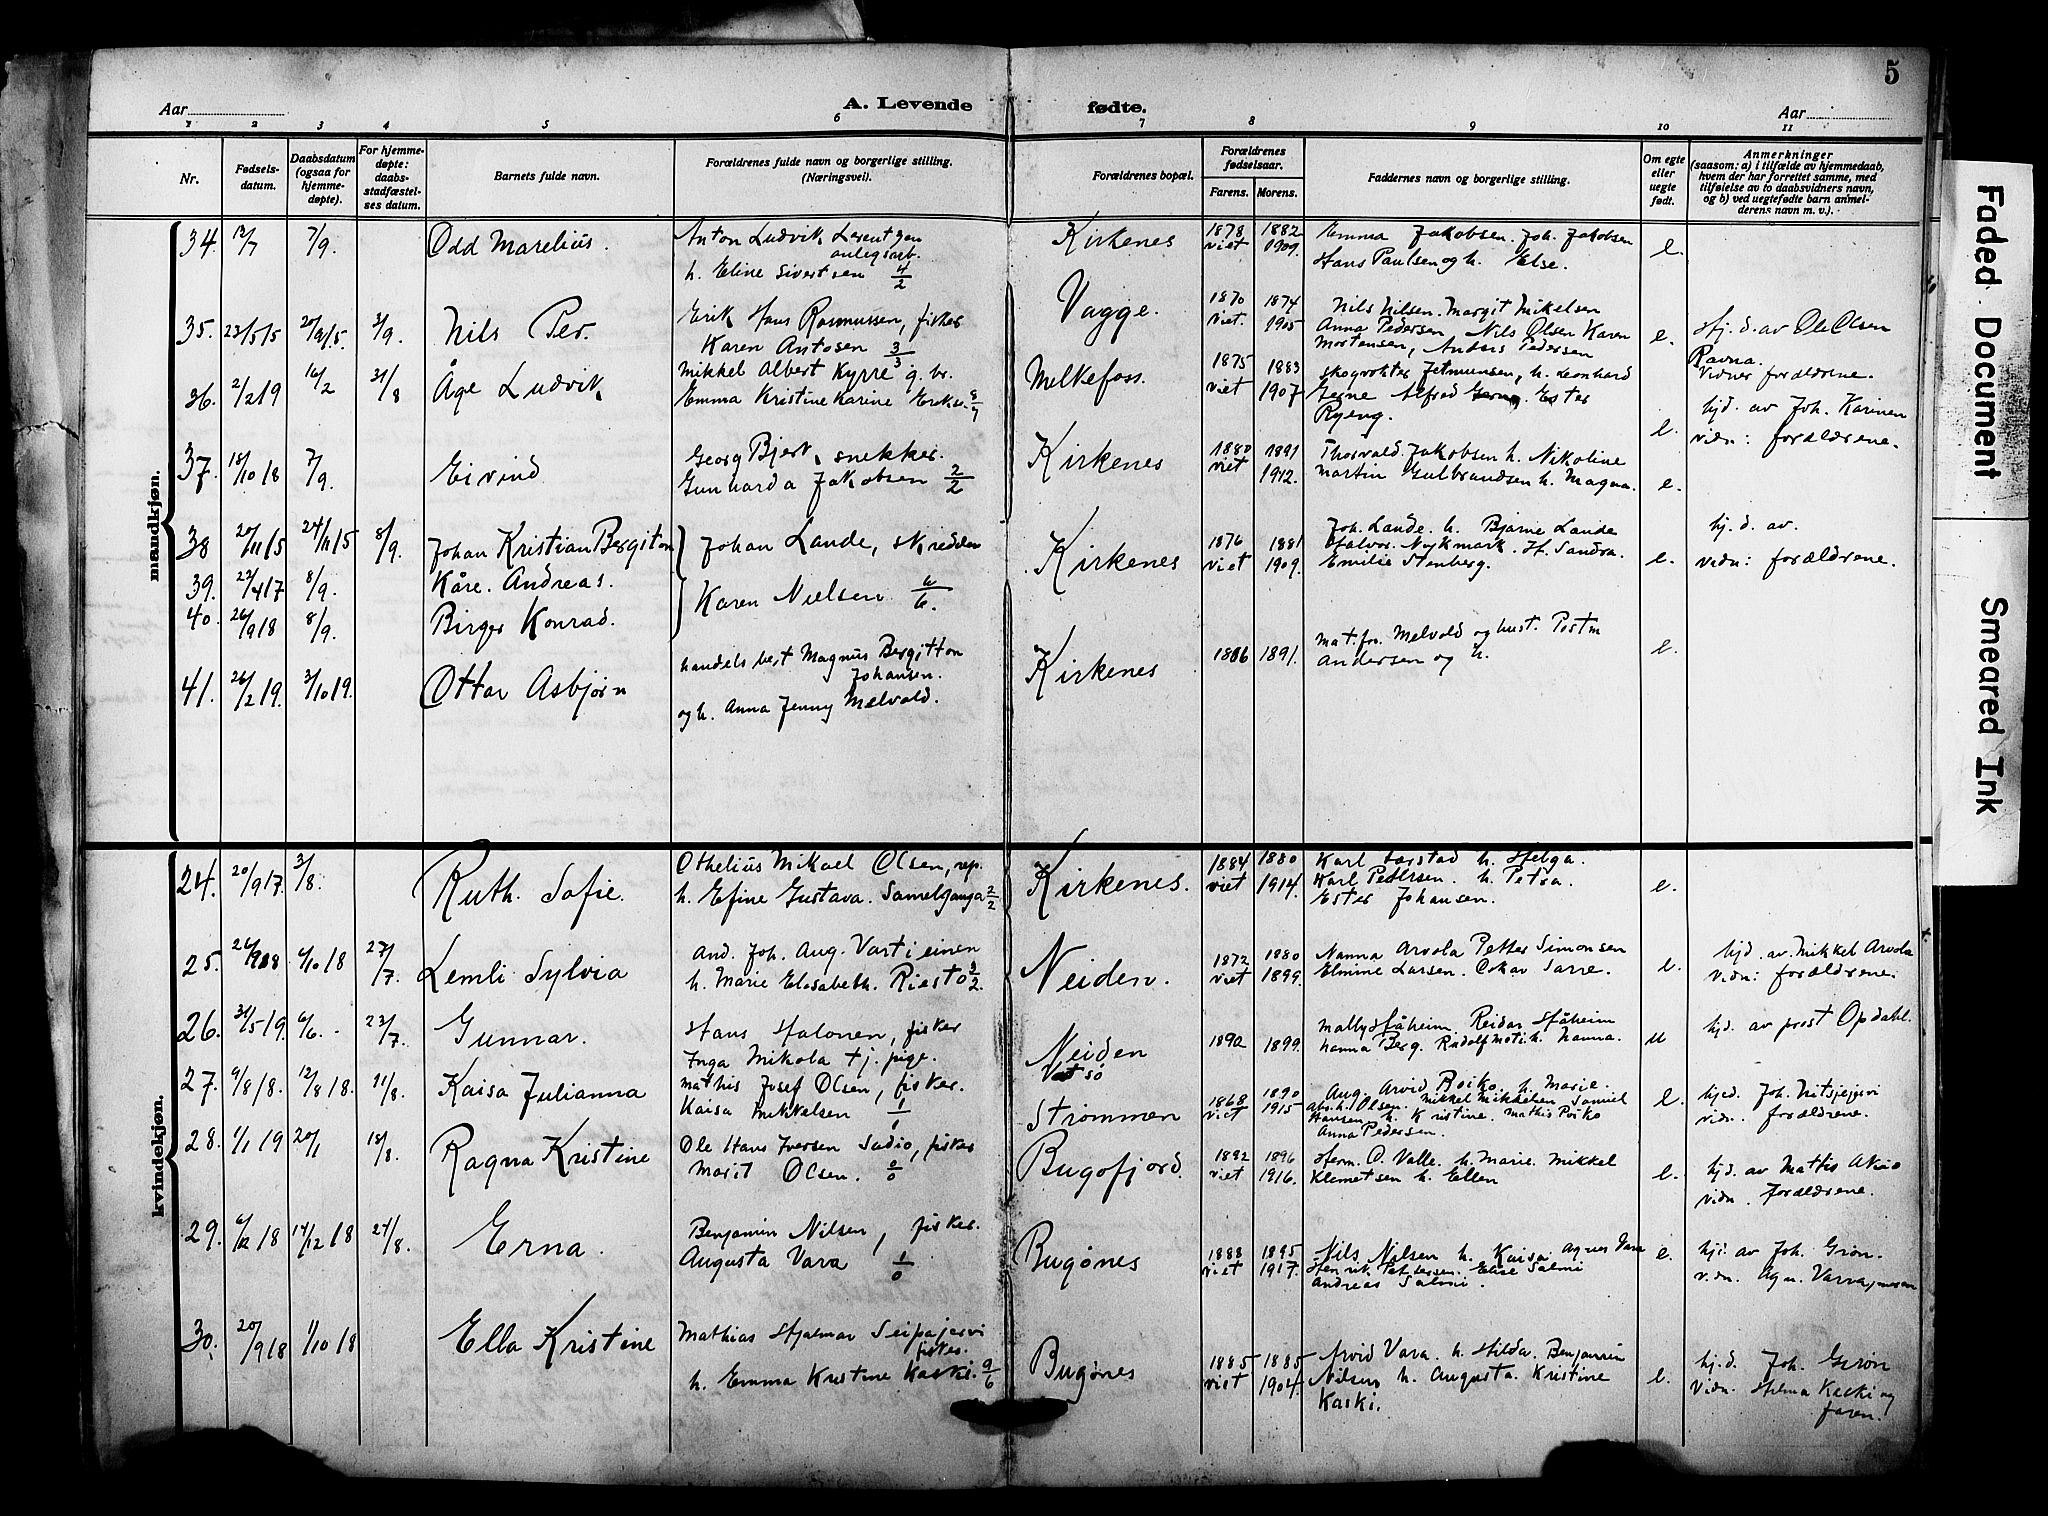 5
Aar
A. Levende fødte.
Aar
1 2 3 4 5 6 7 8 9 10 11
Nr.
Fødsels-
datum.
Daabsdatum
(ogsaa for
hjemme-
døpte).
For hjemme-
døpte:
daabs-
stadfæstel-
ses datum.
Barnets fulde navn.
Forældrenes fulde navn og borgerlige stilling.
(Næringsvei).
Forældrenes bopæl.
Forældrenes
fødselsaar.
Farens. Morens.
Faddernes navn og borgerlige stilling.
Om egte
eller
uegte
født.
Anmerkninger
(saasom: a) i tilfælde av hjemmedaab,
hvem der har forrettet samme, med
tilføielse av to daabsvidners navn,
og b) ved uegtefødte barn anmel-
derens navn m. v.).
mandkjøn.
34. 13/7 7/9. Odd Marelius.
Anton Ludvik
anlegsarb.
h. Eline Sivertsen 4/2
Kirkenes 1878 1882
viet 1909.
Emma Jakobsen. Joh. Jakobsen
Hans Paulsen og h. Else.
e.
35. 23/5 15 3/9. Nils Per.
Erik Hans Rasmussen, fisker
Karen Antosen 3/3
Vagge. 1870 1874
viet. 1905
Nils Nilsen. Margit Mikelsen
Anna Pedersen, Nils Olsen Karen
Mortensen, Anders Pedersen
e.
Hj. d. av Ole Olsen
Ravna.
Vidner forældrene.
36. 2/2 19 16/2 31/8 Åge Ludvik
Mikkel Albert Kyrre g. br.
Emma Kristine Karine
Melkefoss. 1875 1883
viet 1907
h. Leonhard
Gerne Alfred Ester
Ryeng.
e.
hjd. av Joh. Karinen
vidn: forældrene.
37. 18/10 18 7/9. Eivind
Georg Bjerk, snekker.
Gunharda Jakobsen 2/2
Kirkenes 1880 1891
viet 1912.
Thorvald Jakobsen h. Nikoline
Martin Gulbrandsen h. Magna.
e.
38 20/11 15 24/11 15 8/9. Johan Kristian Bergiton
39. 23/4 17 8/9. Kåre. Andreas.
40. 26/9 18 8/9. Birger Konrad.
Johan Lande, skredder
Karen Nielsen 6/6.
Kirkenes 1876 1881
viet 1909.
Joh. Lande. h. Bjarne Lande
Halvor Nykmark. H. Sandra.
Emilie Stenberg.
e.
hj. d. av.
vidn: forældrene.
41. 26/2 19. 3/10 19. Ottar Asbjørn
handels best Magnus Bergitton
Johansen.
og h. Anna Jenny Melvold.
Kirkenes 1886 1891.
mat. for. Melvold og hust. Postm
Andersen og h.
e.
kvindekjøn.
24. 20/9 17. 3/8. Ruth. Sofie.
Othelius Mikael Olsen, rep.
h. Efine Gustava. 2/2
Kirkenes. 1884 1880
viet 1914.
Karl Sarstad h. Helga.
Karl Pettersen. h. Petra.
Ester Johansen.
e.
25. 6/10 18 27/7. Lemli Sylvia
And. Joh. Aug. Vartieinen
h. Marie Elisabeth. Riesto 3/2.
Neiden. 1872 1880
viet 1899.
Nanna Arvola Petter Simonsen
Elmine Larsen. Oskar Sarre.
e.
hjd. av Mikkel Arvola
vidn: forældrene.
26. 31/5 19. 6/6. 23/7. Gunnar.
Hans Halonen, fisker
Inga Mikola tj. pige.
Neiden 1890 1899.
Mally Håheim. Reidar Håheim
Nanna Berg. h. Nanna.
u
hjd. av prost Opdahl.
27. 9/8 18. 12/8 18. 11/8. Kaisa Julianna
Mathis Josef Olsen, fisker.
Kaisa Mikkelsen 1/1
Strømmen 1868 1890
viet 1915
Aug. Arvid Boiko. h. Marie.
Olsen. Mikkel Mikkelsen Samuel
Hansen h. Kristine. Mathis Poiko
Anna Pedersen.
e.
hjed. Joh.
vidn. forældrene.
28. 1/1 19 20/1 18/8. Ragna Kristine
Ole Hans Iversen Sudio, fisker
Marit Olsen. 0/0
Bugøfjord. 1892 1896
viet 1916.
Herm. O. Valle. h. Marie. Mikkel
Klemetsen h. Ellen
e.
hjd. av Mattis Akio
vidn. forældrene.
29. 6/12 18 14/12 18 27/8. Erna.
Benjamin Nilsen, fisker.
Augusta Vara 1/0
Bugønes 1888 1895
viet 1917.
Nils Nilsen h. Kaisa. Agnes Vara
Henrik Pettersen. Elise Salmi
Andreas Salmi.
e.
hjd. av Joh. Grøn.
vidn. Agn. Varra,
30. 20/9 18 1/10 18 Ella Kristine
Mathias Hjalmar Seipajervi
fisker.
h. Emma Kristine Kaski. 9/6
Bugønes 1885 1885
viet 1904.
Arvid Vara. h. Hilda. Benjamin
Nilsen h. Augusta. Kristine
Kaski.
e.
hj.d. Joh. Grøn
vidn. Helma Kaski og
faren.
Faded Document
Smeared Ink